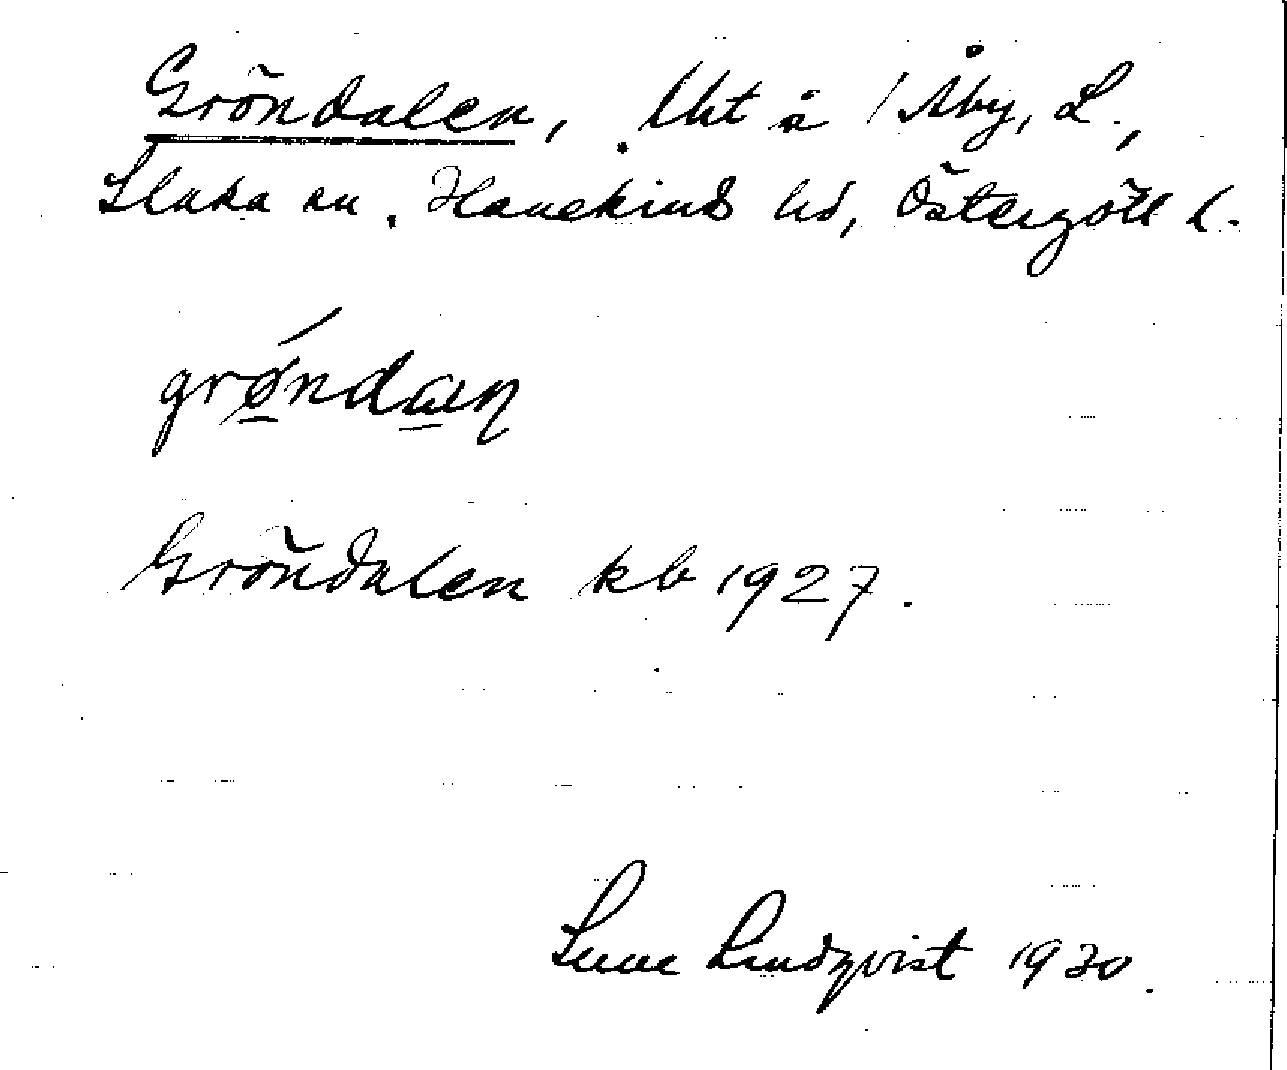 Gröndalen, Uht å 1 Åby, L.,
Slaka sn. Hanekinds hd, Östergötl l.
grǿndaɐn
Gröndalen kb 1927.
Sune Lindqvist 1930.